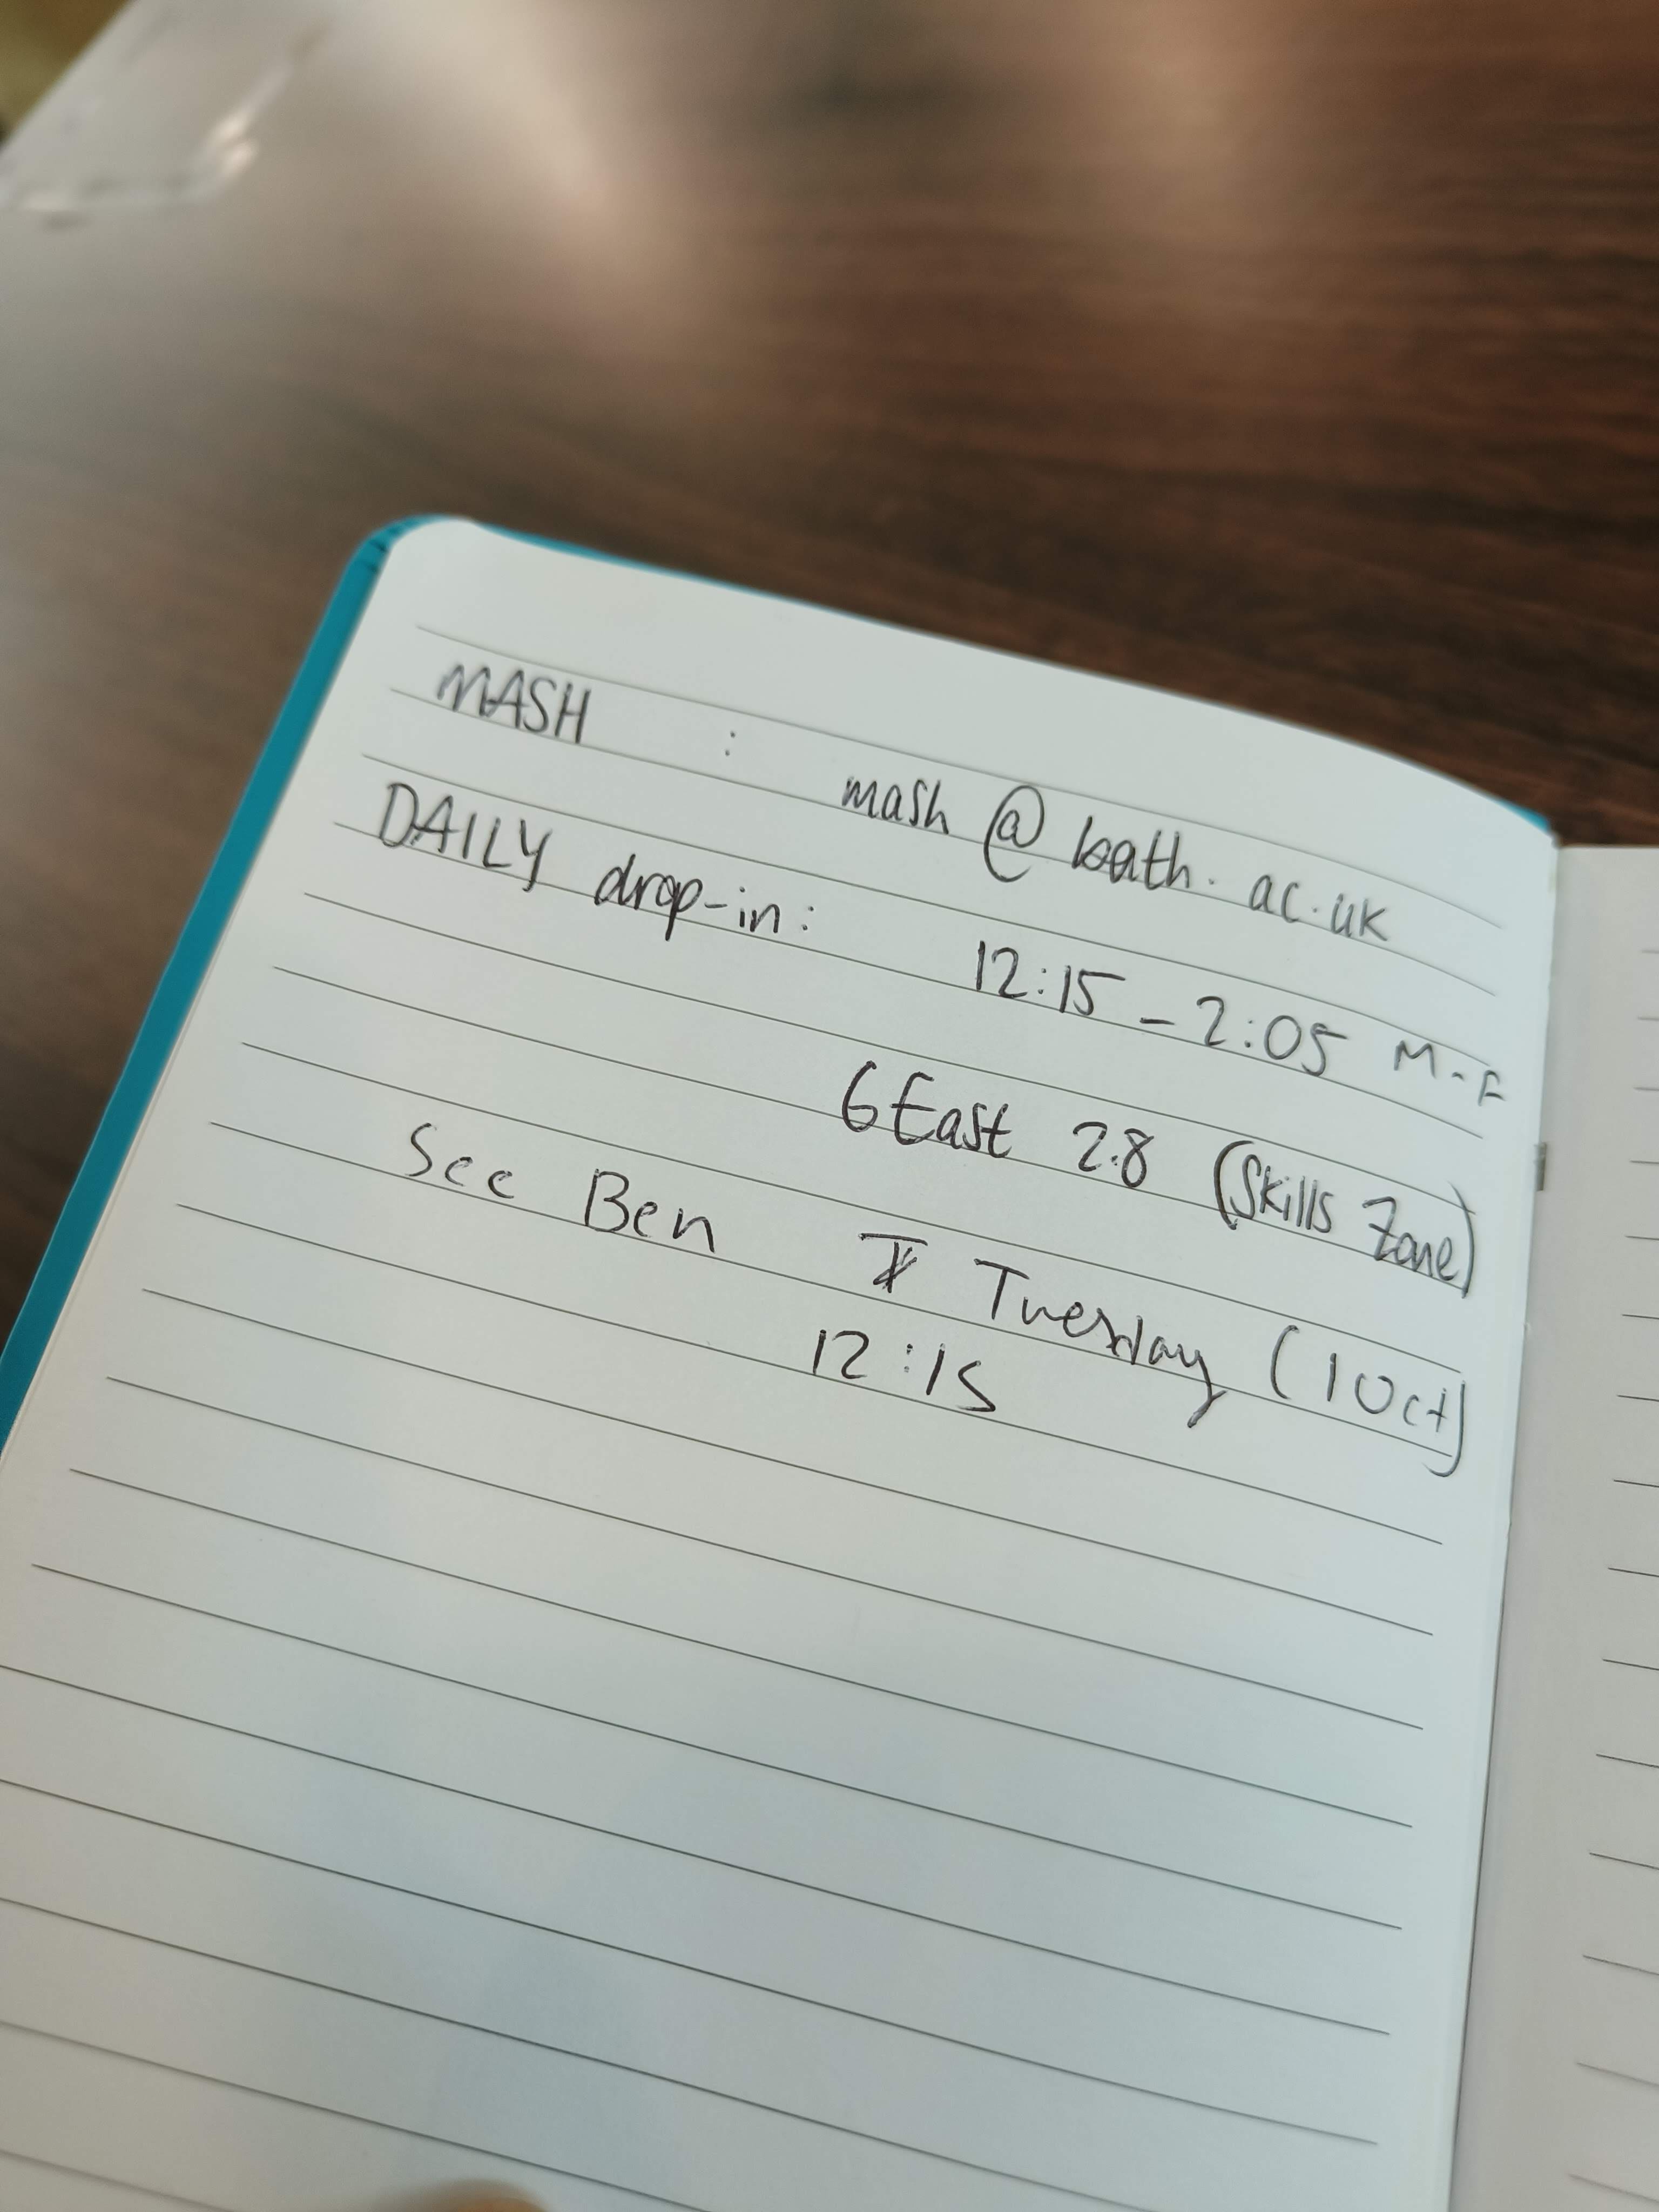 MASH : mash @ bath. ac.uk
DAILY drop-in: 12:15 - 2:05 M-F
6 East 2.8 (Skills Zone)
See Ben Tuesday (1 Oct)
12:15